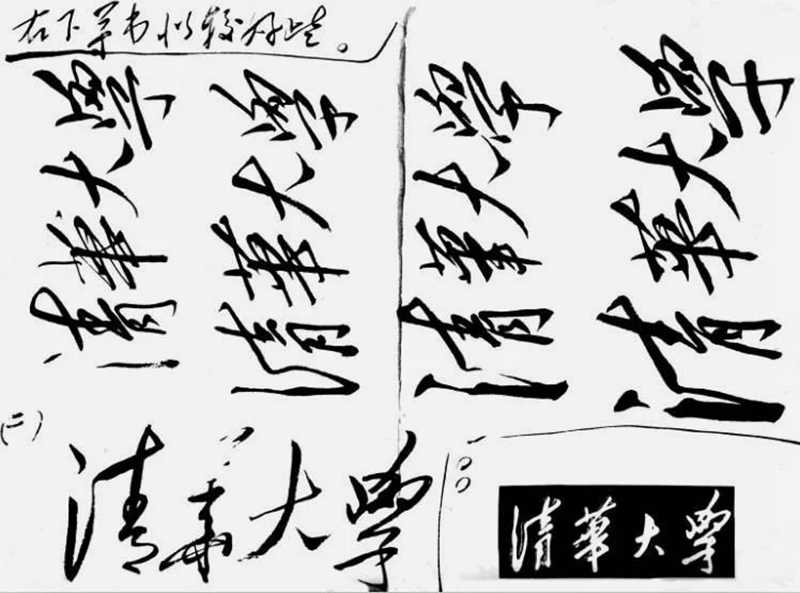 右下草书似较好些。
清華大學
清華大學
清華大學
清華大學
(二)
清華大學
清華大學